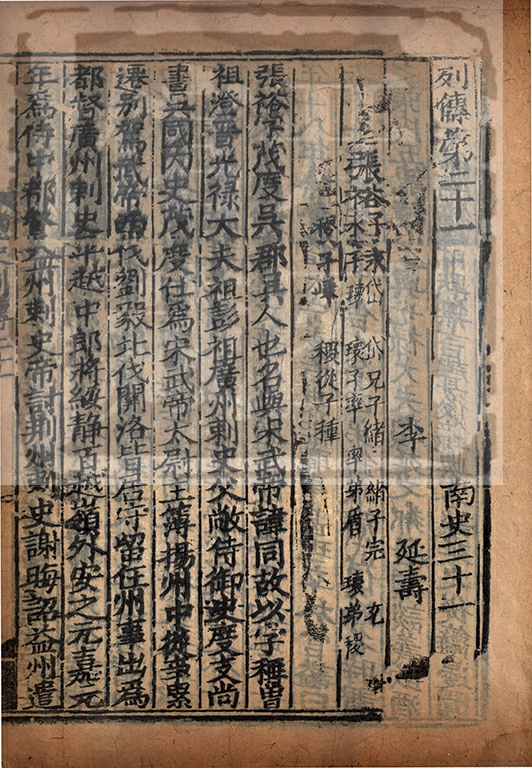 列傳第二十一 南史三十一
李 延壽
張裕 子永 岱 岱兄子緒 緒子完 充
永子瓌 瓌子率 率弟盾 瓌弟稷
稷子嵊 稷從子種
張裕字茂度吳郡吳人也名與宋武帝諱同故以字稱曾
祖澄晉光祿大夫祖彭祖廣州刺史父敞侍御史度支尚
書吳國內史茂度仕爲宋武帝太尉主薄揚州中從事累
遷別駕武帝西伐劉毅北伐關洛皆居守留任州事出爲
都督廣州刺史平越中郎將綏静百越嶺外安之元嘉元
年爲侍中都督益州刺史帝討荆州刺史謝晦詔益州遣